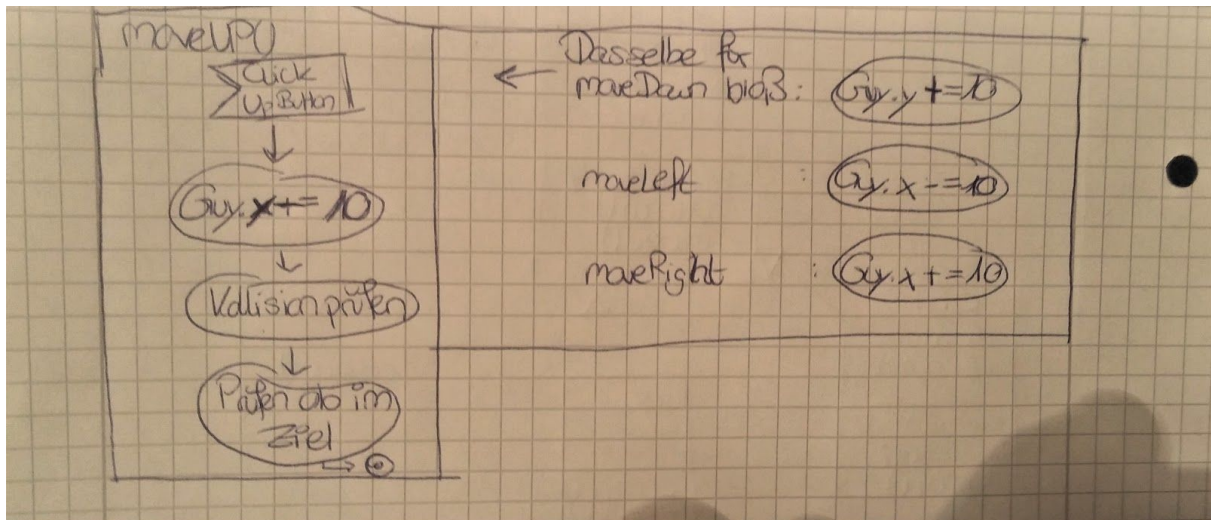 moveUP()
Click
UpButton
Guy.x+=10
Kollision prüfen
Prüfen ob im
Ziel
Dasselbe für
moveDown bloß: Guy.y +=10
moveLeft : Guy.x -=10
moveRight : Guy.x +=10